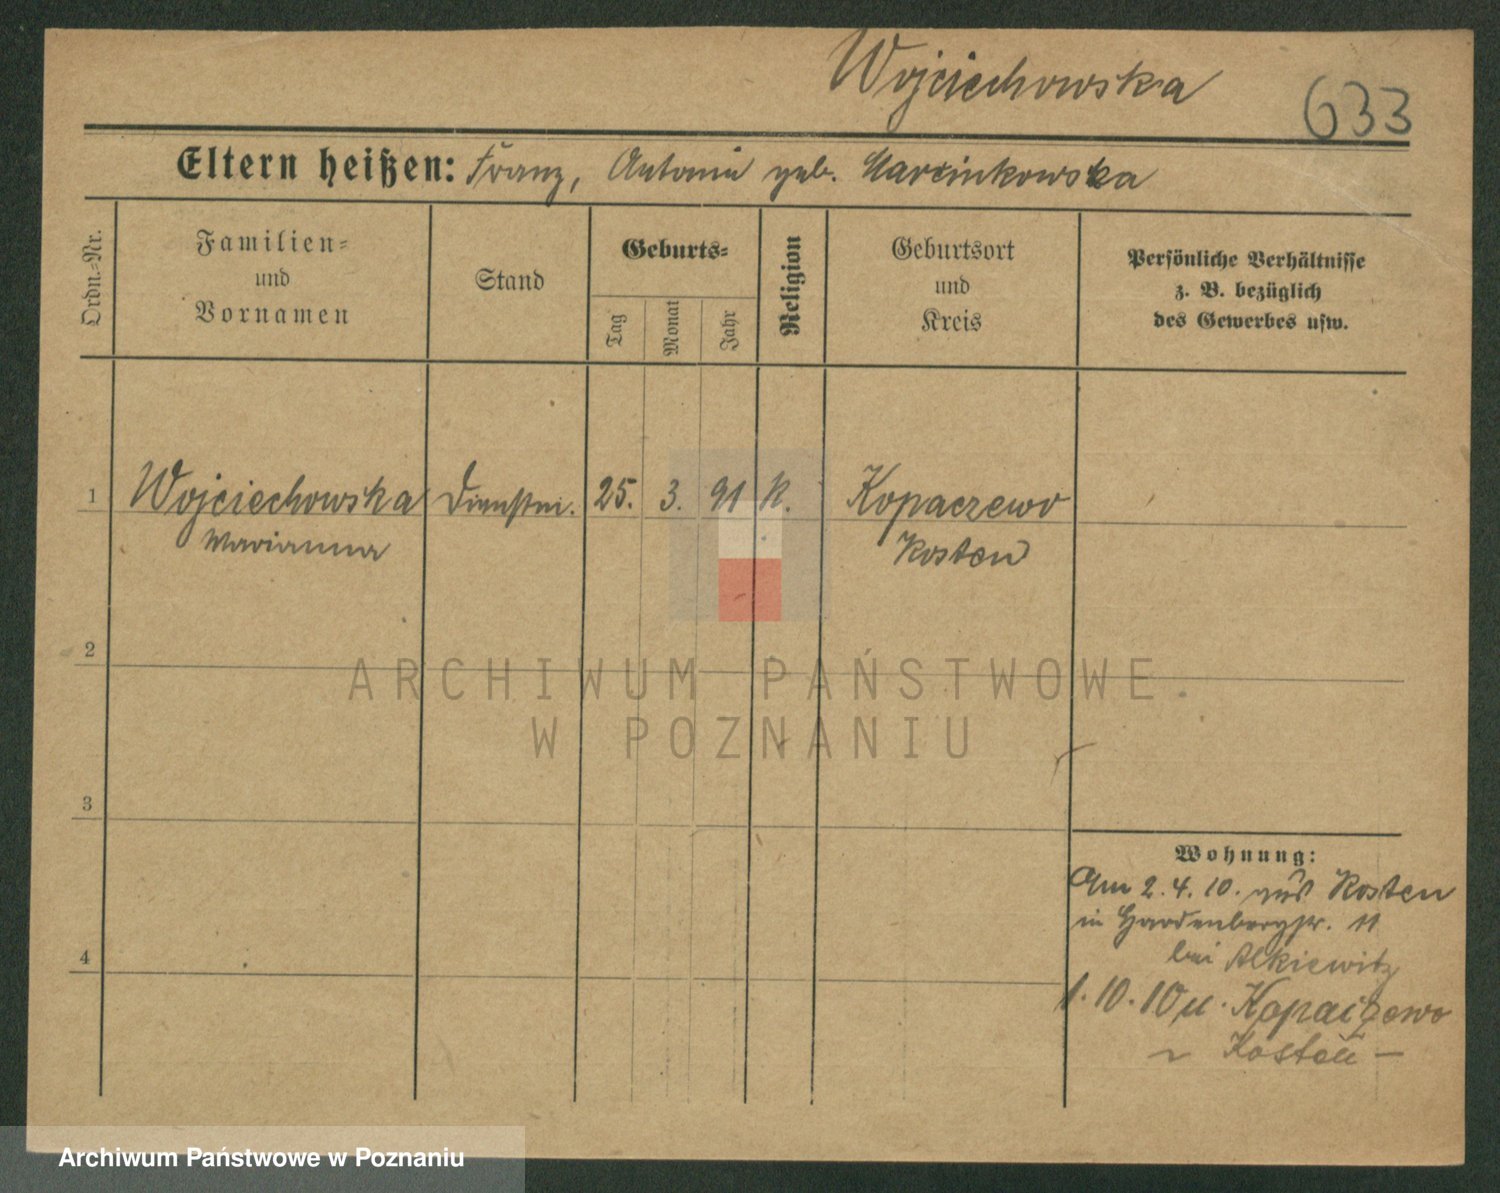 Wojciechowska
633
Eltern heißen: Franz, Antonie geb. Marcinkowska
Ordn.-Nr.
Familien-
und
Vornamen
Stand
Geburts-
Tag
Monat
Jahr
Religion
Geburtsort
und
Kreis
Persönliche Verhältnisse
z. B. bezüglich
des Gewerbes usw.
1 Wojciechowska Dienstm. 25. 3. 91 K. Kopaczewo
Marianna Kosten
2
ARCHIWUM PAŃSTWOWE
W POZNANIU
3
Wohnung:
Am 2. 4. 10. aus Kosten
in Hardenbergstr. 11
bei Alkiewitz
4
1. 10. 10 n. Kopaczewo
Kosten
Archiwum Państwowe w Poznaniu